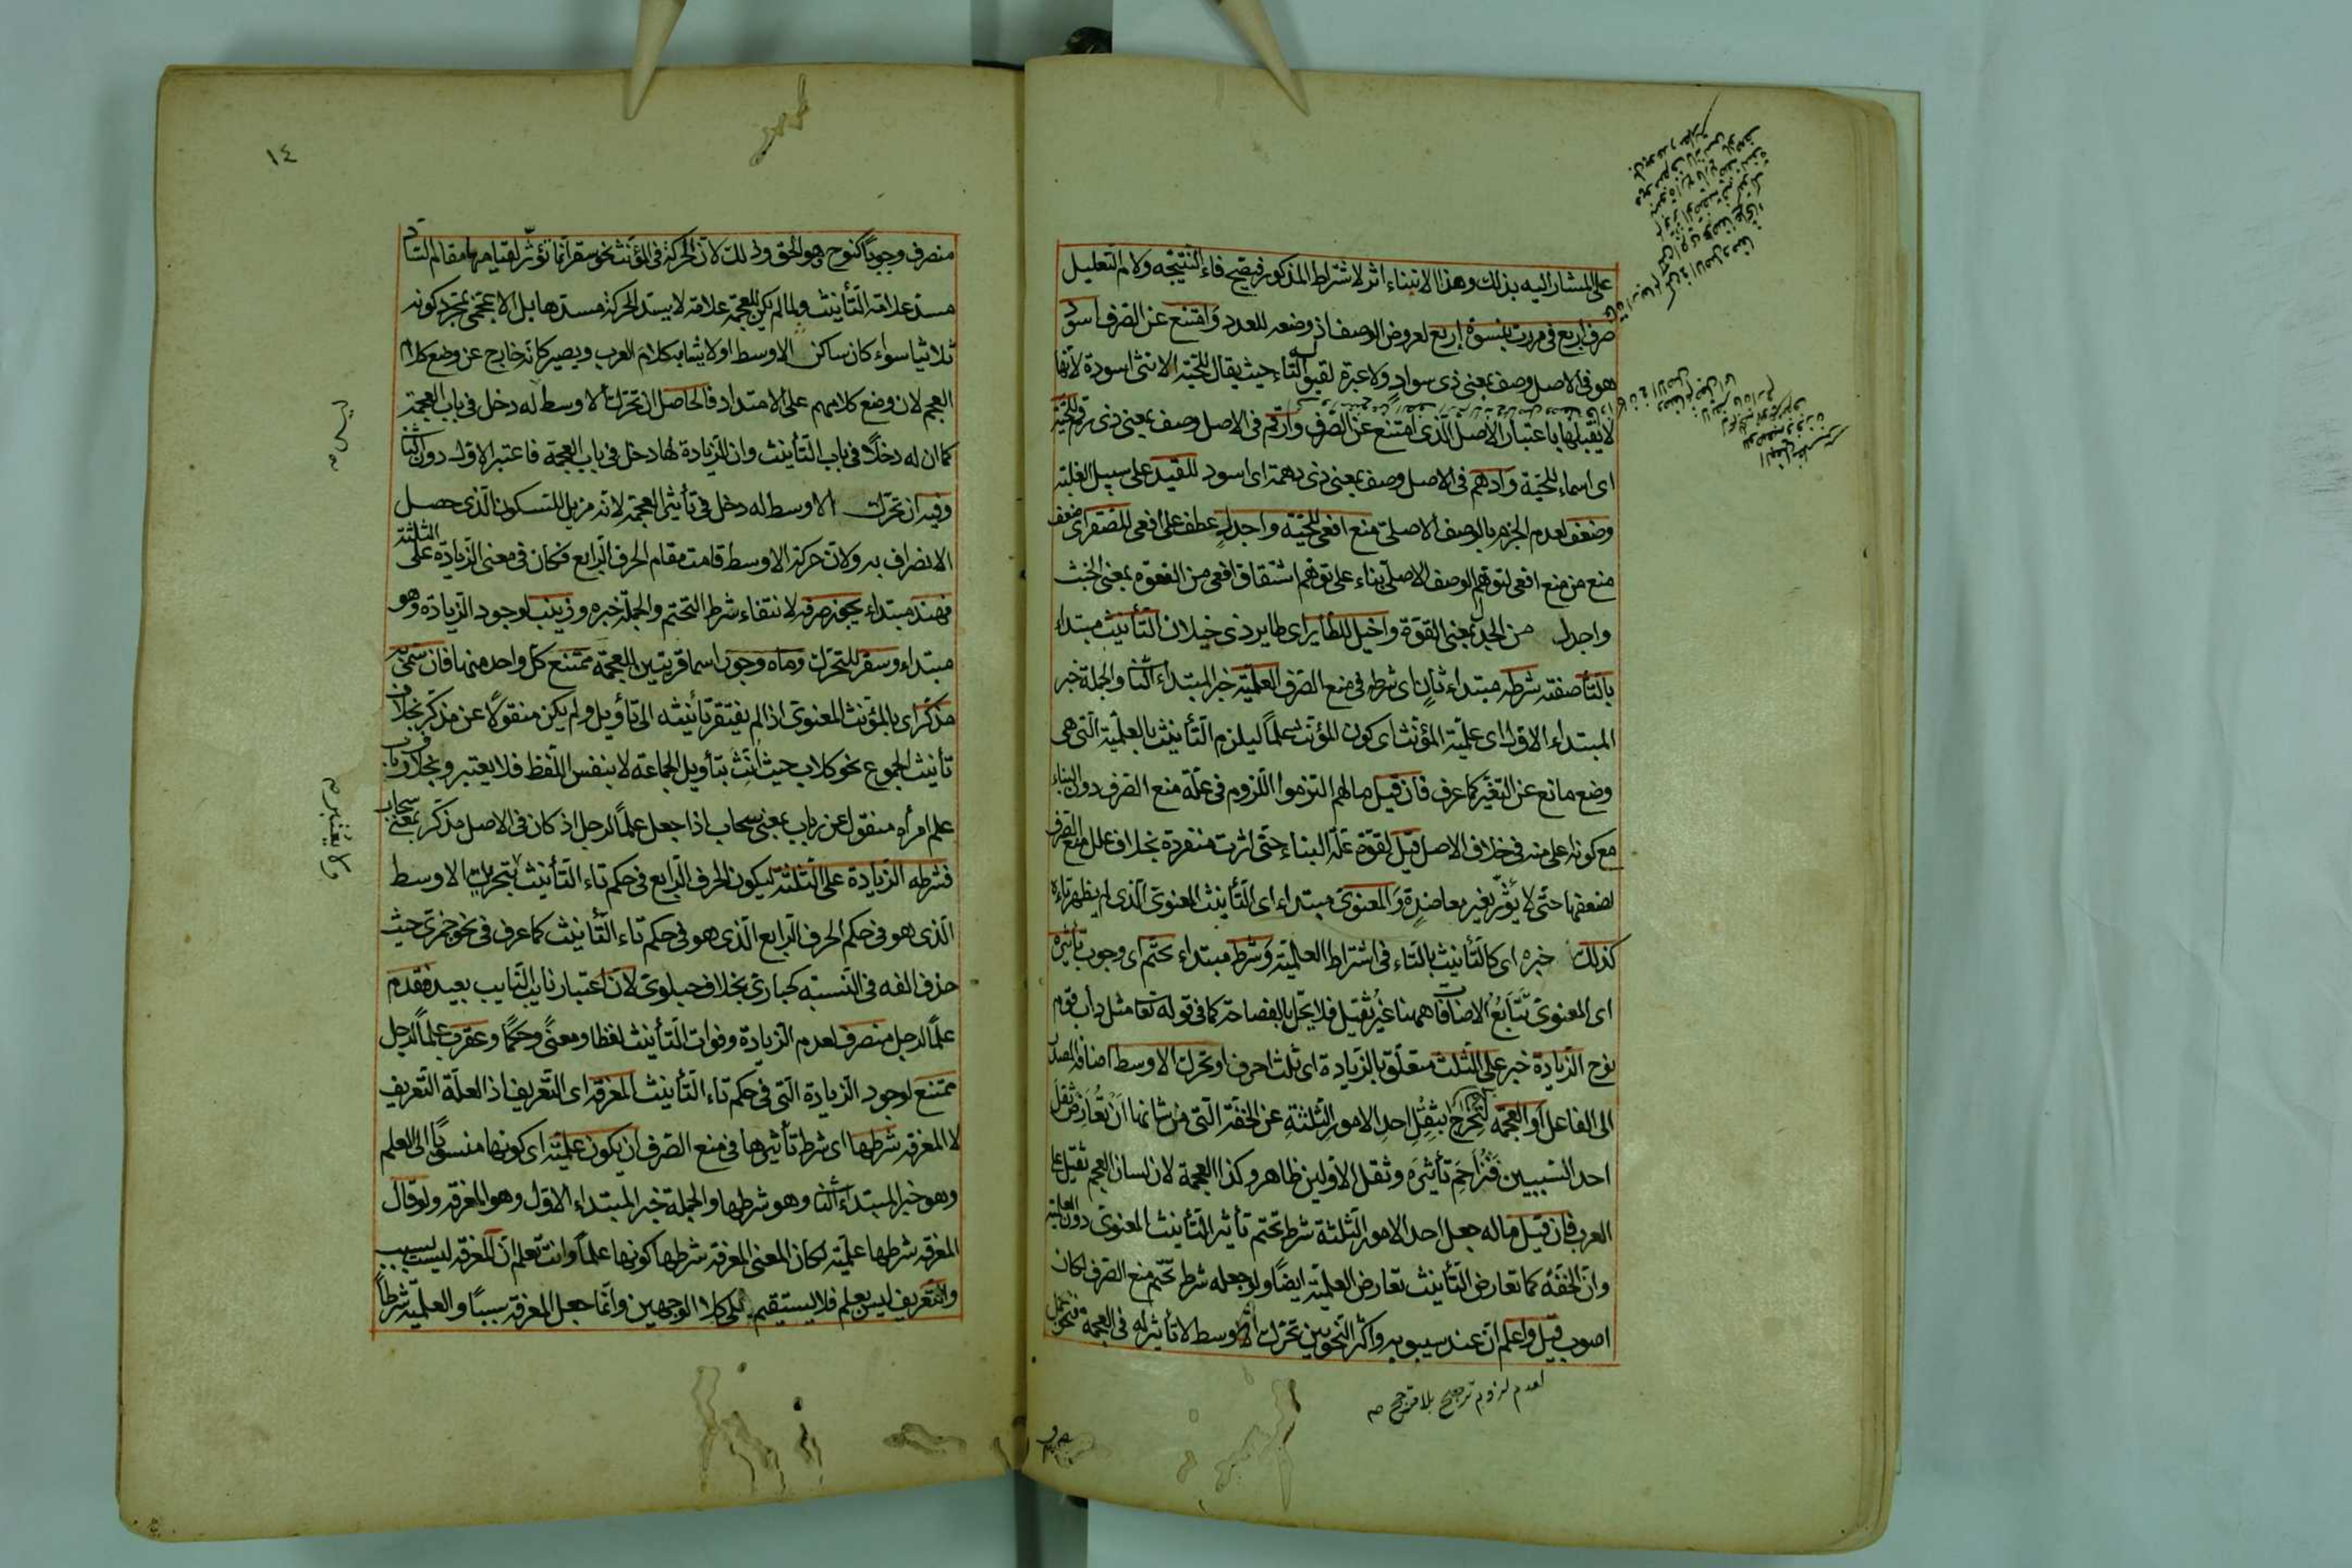 على المشار اليه بذلك وهذا الابتناء اثر لاشتراط المذكور فيصح فاء النتيجة ولام التعليل
صرف اربع في مررت بنسوة اربع لعروض الوصف اذ وضعه للعدد وامتنع عن الصرف اسود
هو في الاصل وصف بمعنى ذى سواد ولا عبرة لقبول التاء حيث يقال للحية الانثى اسودة لانها
لا يقبلها باعتبار الاصل الذى امتنع عن الصرف وارقم في الاصل وصف بمعنى ذى رقم للحية
اى اسماء للحية وادهم في الاصل وصف بمعنى ذى دهمة اى اسود للقيد على سبيل الغلبة
وضعف لعدم الجزم بالوصف الاصلى منع افعى للحية واجدل عطف على افعى للصقر اى ضعف
منع من منع افعى لتوهم الوصف الاصلى بناء على توهم اشتقاق افعى من الفعوة بمعنى الخبث
واجدل من الجدل بمعنى القوة واخيل للطاير اى طاير ذى خيلان التأنيث مبتداء
بالتاء صفته شرطه مبتداء ثان اى شرطه في منع الصرف العلمية خبر المبتداء الثانى والجملة خبر
المبتداء الاول اى علمية المؤنث اى كون المؤنث علما ليلزم التأنيث بالعلمية التى هى
وضع مانع عن التغير كما عرف فان قيل مالهم التزموا اللزوم في علة منع الصرف دون البناء
مع كونه على منه في خلاف الاصل قيل لقوة علة البناء حتى اثرت منفردة بخلاف علل منع الصرف
لضعفها حتى لا يؤثر بغير معاضدة والمعنوى مبتداء اى التأنيث المعنوى الذى لم يظهر تاءه
كذلك خبره اى كالتأنيث بالتاء في اشتراط العلمية وشرط مبتداء تحتم اى وجوب تأثيره
اى المعنوى تتابع الاضافات ههنا غير ثقيل فلا يخل بالفصاحة كما في قوله تعا مثل دأب قوم
نوح الزيادة خبر على الثلث متعلق بالزيادة اى ثلث احرف او تحرك الاوسط اضافة المصدر
الى الفاعل او العجمة لتخرج بثقل احد الامور الثلثة عن الخفة التى من شانها ان تعارض ثقل
احد السببين فتزاحم تأثيره وثقل الاولين ظاهر وكذا العجمة لان لسان العجم ثقيل على
العرب فان قيل ماله جعل احد الامور الثلثة شرط تحتم تأثير التأنيث المعنوى دون العلمية
وان الخفة كما تعارض التأنيث تعارض العلمية ايضا ولو جعله شرط تحتم منع الصرف لكان
اصوب قيل واعلم ان عند سيبويه واكثر النحويين تحرك الاوسط لا تأثير له في العجمة فنحو
لعدم لزوم ترجيح بلا مرجح
١٤
منصرف وجوبا كنوح وهو الحق وذلك لان الحركة في المؤنث نحو سقر انما تؤثر لقيامها مقام الساد
مسد علامة التأنيث ولما لم يكن للعجمة علامة لا يسد الحركة مسدها بل الاعجمى بمجرد كونه
ثلاثيا سواء كان ساكن الاوسط اولا يشابه كلام العرب ويصير كانه خارج عن وضع كلام
العجم لان وضع كلامهم على الامتداد فالحاصل ان تحرك الاوسط له دخل في باب العجمة
كما ان له دخلا في باب التأنيث وان للزيادة لها دخل في باب العجمة فاعتبر الاول دون الثانى
وفيه ان تحرك الاوسط له دخل في تأثير العجمة لانه مزيل للسكون الذى حصل
الانصراف به ولان حركة الاوسط قامت مقام الحرف الرابع فكان في معنى الزيادة على الثلثة
فهند مبتداء يجوز صرفه لانتفاء شرط التحتم والجملة خبره وزينب لوجود الزيادة وهو
مبتداء وسقر للتحرك وماه وجور اسما قريتين للعجمة ممتنع كل واحد منها فان سمى به
مذكر اى بالمؤنث المعنوى اذا لم يفتقر تأنيثه الى تأويل ولم يكن منقولا عن مذكر بخلاف
تأنيث الجموع نحو كلاب حيث انث بتأويل الجماعة لا بنفس اللفظ فلا يعتبر وبخلاف رباب
علم امرأه منقول عن رباب بمعنى سحاب اذا جعل علما لرجل اذ كان في الاصل مذكر بمعنى سحاب
فشرطه الزيادة على الثلثة ليكون الحرف الرابع في حكم تاء التأنيث لا بتحريك الاوسط
الذى هو في حكم الحرف الرابع الذى هو في حكم تاء التأنيث كما عرف في نحو جمزى حيث
حذف الفه في النسبة كحبارى بخلاف حبلوى لان اعتبار نايب النايب بعيد فقدم
علما لرجل منصرف لعدم الزيادة وفوات التأنيث لفظا ومعنى وحكما وعقرب علما لرجل
ممتنع لوجود الزيادة التى في حكم تاء التأنيث المعرفة اى التعريف اذ العلة التعريف
لا المعرفة شرطها اى شرط تأثيرها في منع الصرف ان يكون علمية اى كونها منسوبا الى العلم
وهو خبر المبتداء الثانى وهو شرطها والجملة خبر المبتداء الاول وهو المعرفة ولو قال
المعرفة شرطها علمية لكان المعنى المعرفة شرطها كونها علما وانت تعلم ان المعرفة ليست بسبب
والتعريف ليس بعلم فلا يستقيم كلا الوجهين وانما جعل المعرفة سببا والعلمية شرطا